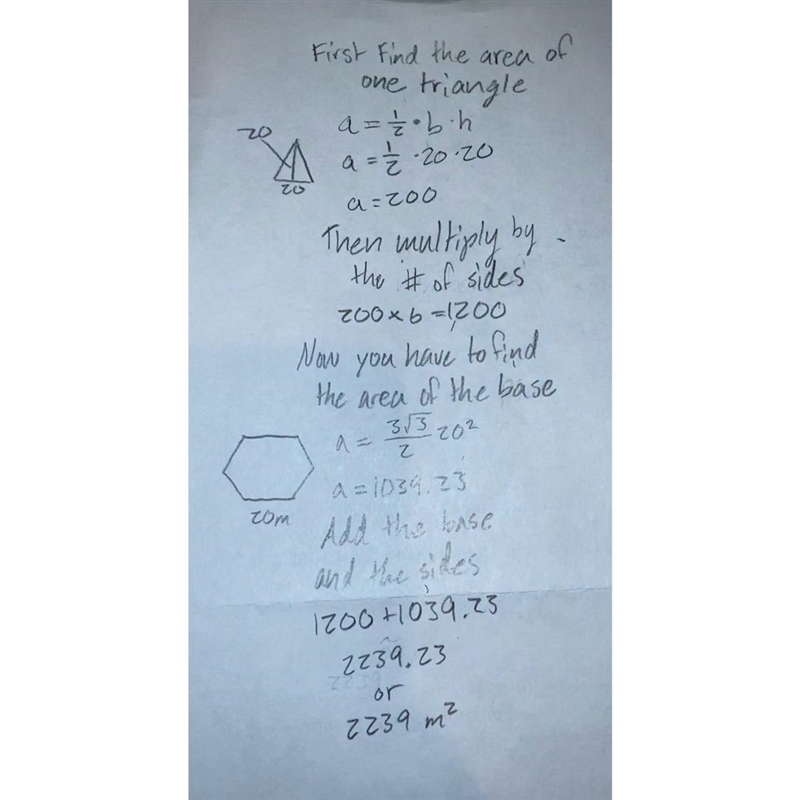 First Find the area of
one triangle
a = 1/2 · b · h
20
a = 1/2 · 20 · 20
20
a = 200
Then multiply by
the # of sides
200 x 6 = 1,200
Now you have to find
the area of the base
a = 3√3/2 20²
a = 1039.23
20m
Add the base
and the sides
1200 + 1039.23
2239.23
or
2239 m²